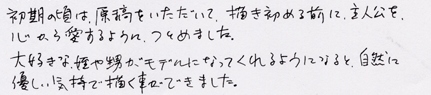 初期の頃は、原稿をいただいて、描き初める前に、主人公を、
心から愛するように、つとめました。
大好きな、姪や甥がモデルになってくれるようになると、自然に
優しい気持で描く事ができました。